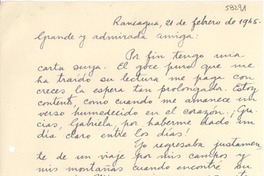 58291
Rancagua, 21 de febrero de 1945.
Grande y admirada amiga:
Por fin tengo una
carta suya. El goce puro que me
ha traído su lectura me paga con
creces la espera tan prolongada. Estoy
contento, como cuando me amanece un
verso humedecido en el corazón. ¡Gra-
cias, Gabriela, por haberme dado un
día claro entre los días!
Yo regresaba justamen-
te de un viaje por mis campos y
mis montañas cuando encontré su